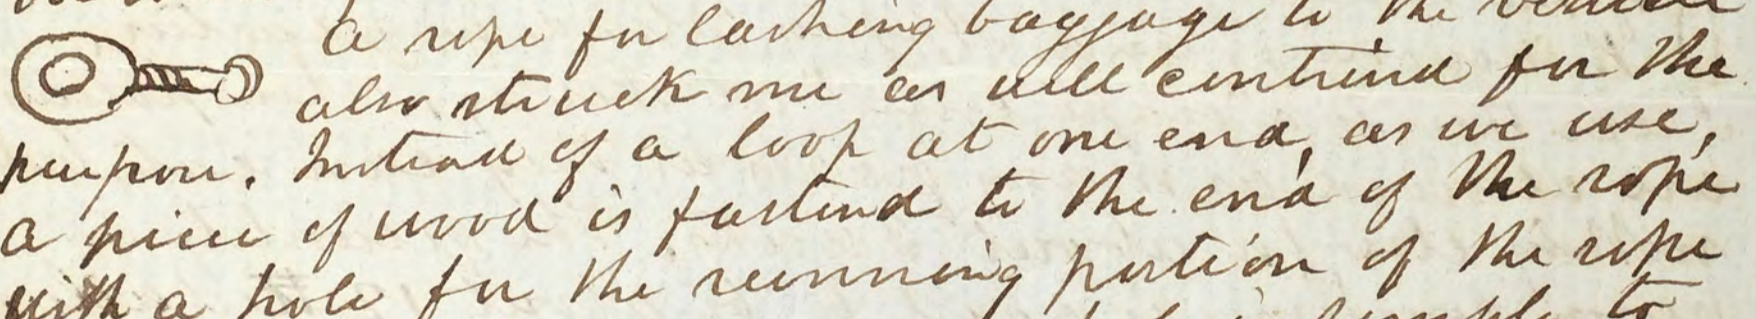 a rope for lashing baggage to the vehicle
also struck me as well contrived for the
purpose. Instead of a loop at one end, as we use,
a piece of wood is fastened to the end of the rope
with a hole for the running portion of the rope
simple to